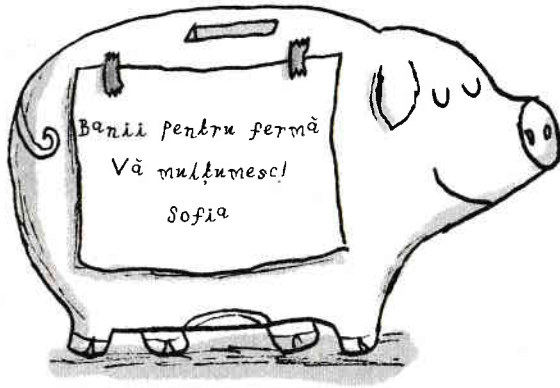 Banii pentru fermă
Vă mulțumesc!
Sofia